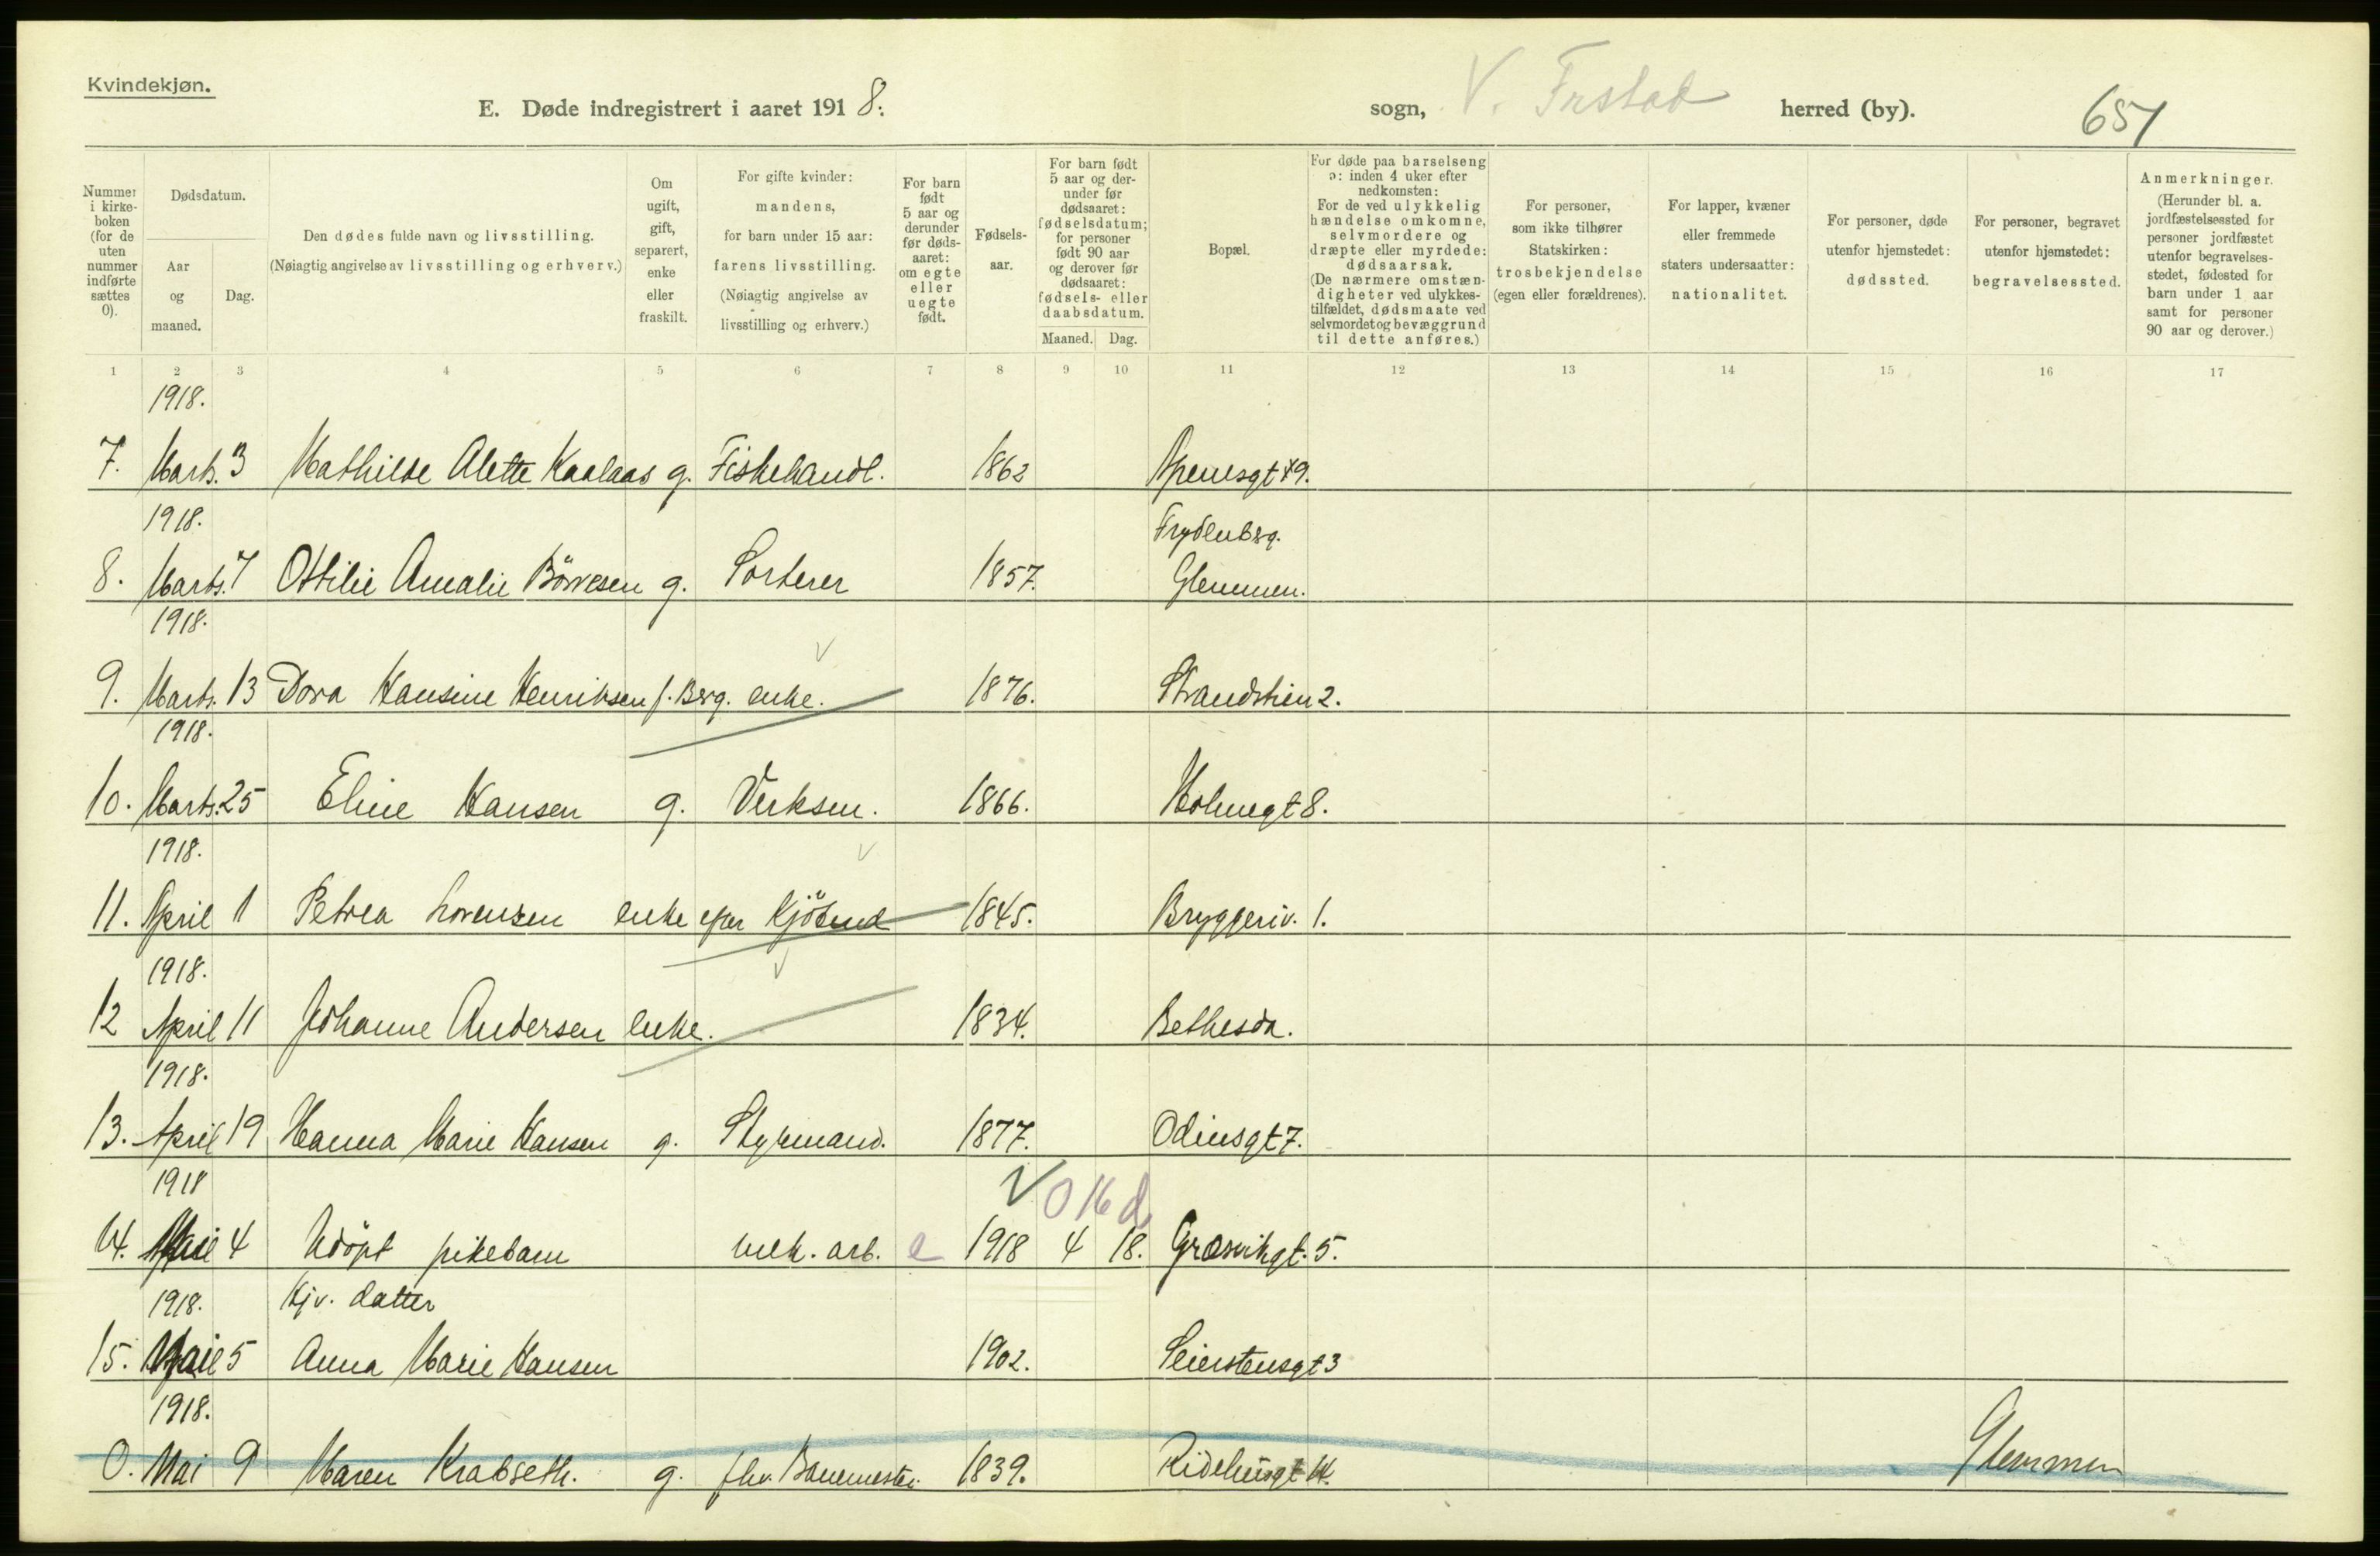 Kvindekjøn.
E. Døde indregistrert i aaret 1918. sogn, V. Frstad herred (by). 651
Nummer i kirke- boken (for de uten nummer indførte sættes 0).
Dødsdatum.
Aar og maaned.
Dag.
Den dødes fulde navn og livsstilling.
(Nøiagtig angivelse av livsstilling og erhverv.)
Om ugift, gift, separert, enke eller fraskilt.
For gifte kvinder: mandens, for barn under 15 aar: farens livsstilling.
(Nøiagtig angivelse av livsstilling og erhverv.)
For barn født 5 aar og derunder før døds- aaret: om egte eller uegte født.
Fødsels- aar.
For barn født 5 aar og der- under før dødsaaret: fødselsdatum; for personer født 90 aar og derover før dødsaaret: fødsels- eller daabsdatum.
Maaned. Dag.
Bopæl.
For døde paa barselseng ɔ: inden 4 uker efter nedkomsten:
For de ved ulykkelig hændelse omkomne, selvmordere og dræpte eller myrdede: dødsaarsak.
(De nærmere omstæn- digheter ved ulykkes- tilfældet, dødsmaate ved selvmordet og bevæggrund til dette anføres.)
For personer, som ikke tilhører Statskirken: trosbekjendelse (egen eller forældrenes).
For lapper, kvæner eller fremmede staters undersaatter: nationalitet.
For personer, døde utenfor hjemstedet: dødssted.
For personer, begravet utenfor hjemstedet: begravelsessted.
Anmerkninger.
(Herunder bl. a. jordfæstelsessted for personer jordfæstet utenfor begravelses- stedet, fødested for barn under 1 aar samt for personer 90 aar og derover.)
1 2 3 4 5 6 7 8 9 10 11 12 13 14 15 16 17
1918.
7. Marts. 3 Mathilde Alette Kaalaas g. Fiskehandl. 1862 Apenesgt 49.
1918. Frydenbrg.
8. Marts. 7 Ottilie Amalie Börresen g. Sorterer 1857. Glemmen.
1918.
9. Marts. 13 Dora Hansine Henriksen f. Berg. enke. 1876. Strandstien 2.
1918.
10. Marts. 25 Eline Hansen g. Verksm. 1866. Holmegt 8.
1918.
11. April 1 Petrea Lorensen enke efter Kjöbmd 1845. Bryggeriv. 1.
1918.
12 April 11 Johanne Andersen enke. 1834. Bethesda.
1918.
13. April 19 Hanna Marie Hansen g. Styrmand. 1877. Odinsgt 7.
1918 0 16 d.
14. Mai 4 Udöpt pikebarn mek. arb. e 1918 4 18. Græsvikgt. 5.
1918. Kjv. datter
15. Mai 5 Anna Marie Hansen 1902. Seierstensgt 3
1918.
0. Mai 9 Maren Krabseth. g. fhv. Banemester 1839. Ridehusgt 14. Glemmen